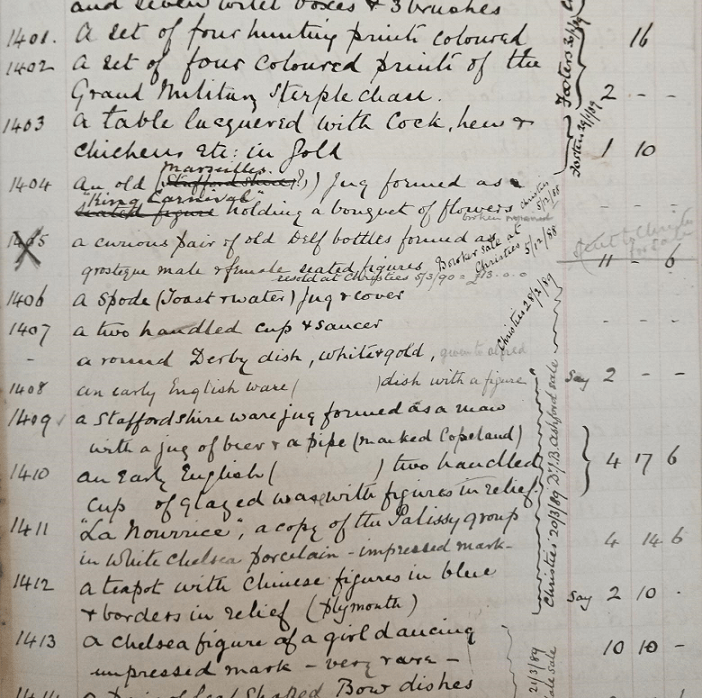 and seven toilet boxes & 3 brushes
1401. A set of four hunting prints coloured 16
1402 A set of four coloured prints of the
Grand Military Steeplechase. 2 - -
1403 a table lacquered with Cock, hen &
chickens etc: in gold 1 10
Fosters 29/1/89
Marseilles.
1404 an old (Staffordshire?) Jug formed as a
"King Carnival"
seated figure holding a bouquet of flowers Christies 5/12/88 - - -
broken
1405 a curious pair of old Delf bottles formed as
grostegue male & female seated figures Bowker sale at Christies 5/12/88 11 - 6
resold at Christies 5/3/90 = £13.0.0
1406 a Spode (Toast & water) Jug & cover
1407 a two handled cup & saucer - - -
Christies 28/2/89
- a round Derby dish, white & gold, given to Alfred
1408 an early English ware ( ) dish with a figure say 2 - -
1409 a Staffordshire ware jug formed as a man
with a jug of beer & a pipe (marked Copeland)
1410 an Early English ( ) two handled 4 17 6
cup of glazed ware with figures in relief.
1411 "La Nourrice", a copy of the Palissy group
in White Chelsea porcelain - impressed mark - 4 14 6
Christies 20/3/89 Dr J.B. Ashford sale
1412 a teapot with Chinese figures in blue
& borders in relief (Plymouth) say 2 10 -
1413 a Chelsea figure of a girl dancing
impressed mark - very rare - 10 10 -
21/3/89
sale
a pair of leaf shaped Bow dishes